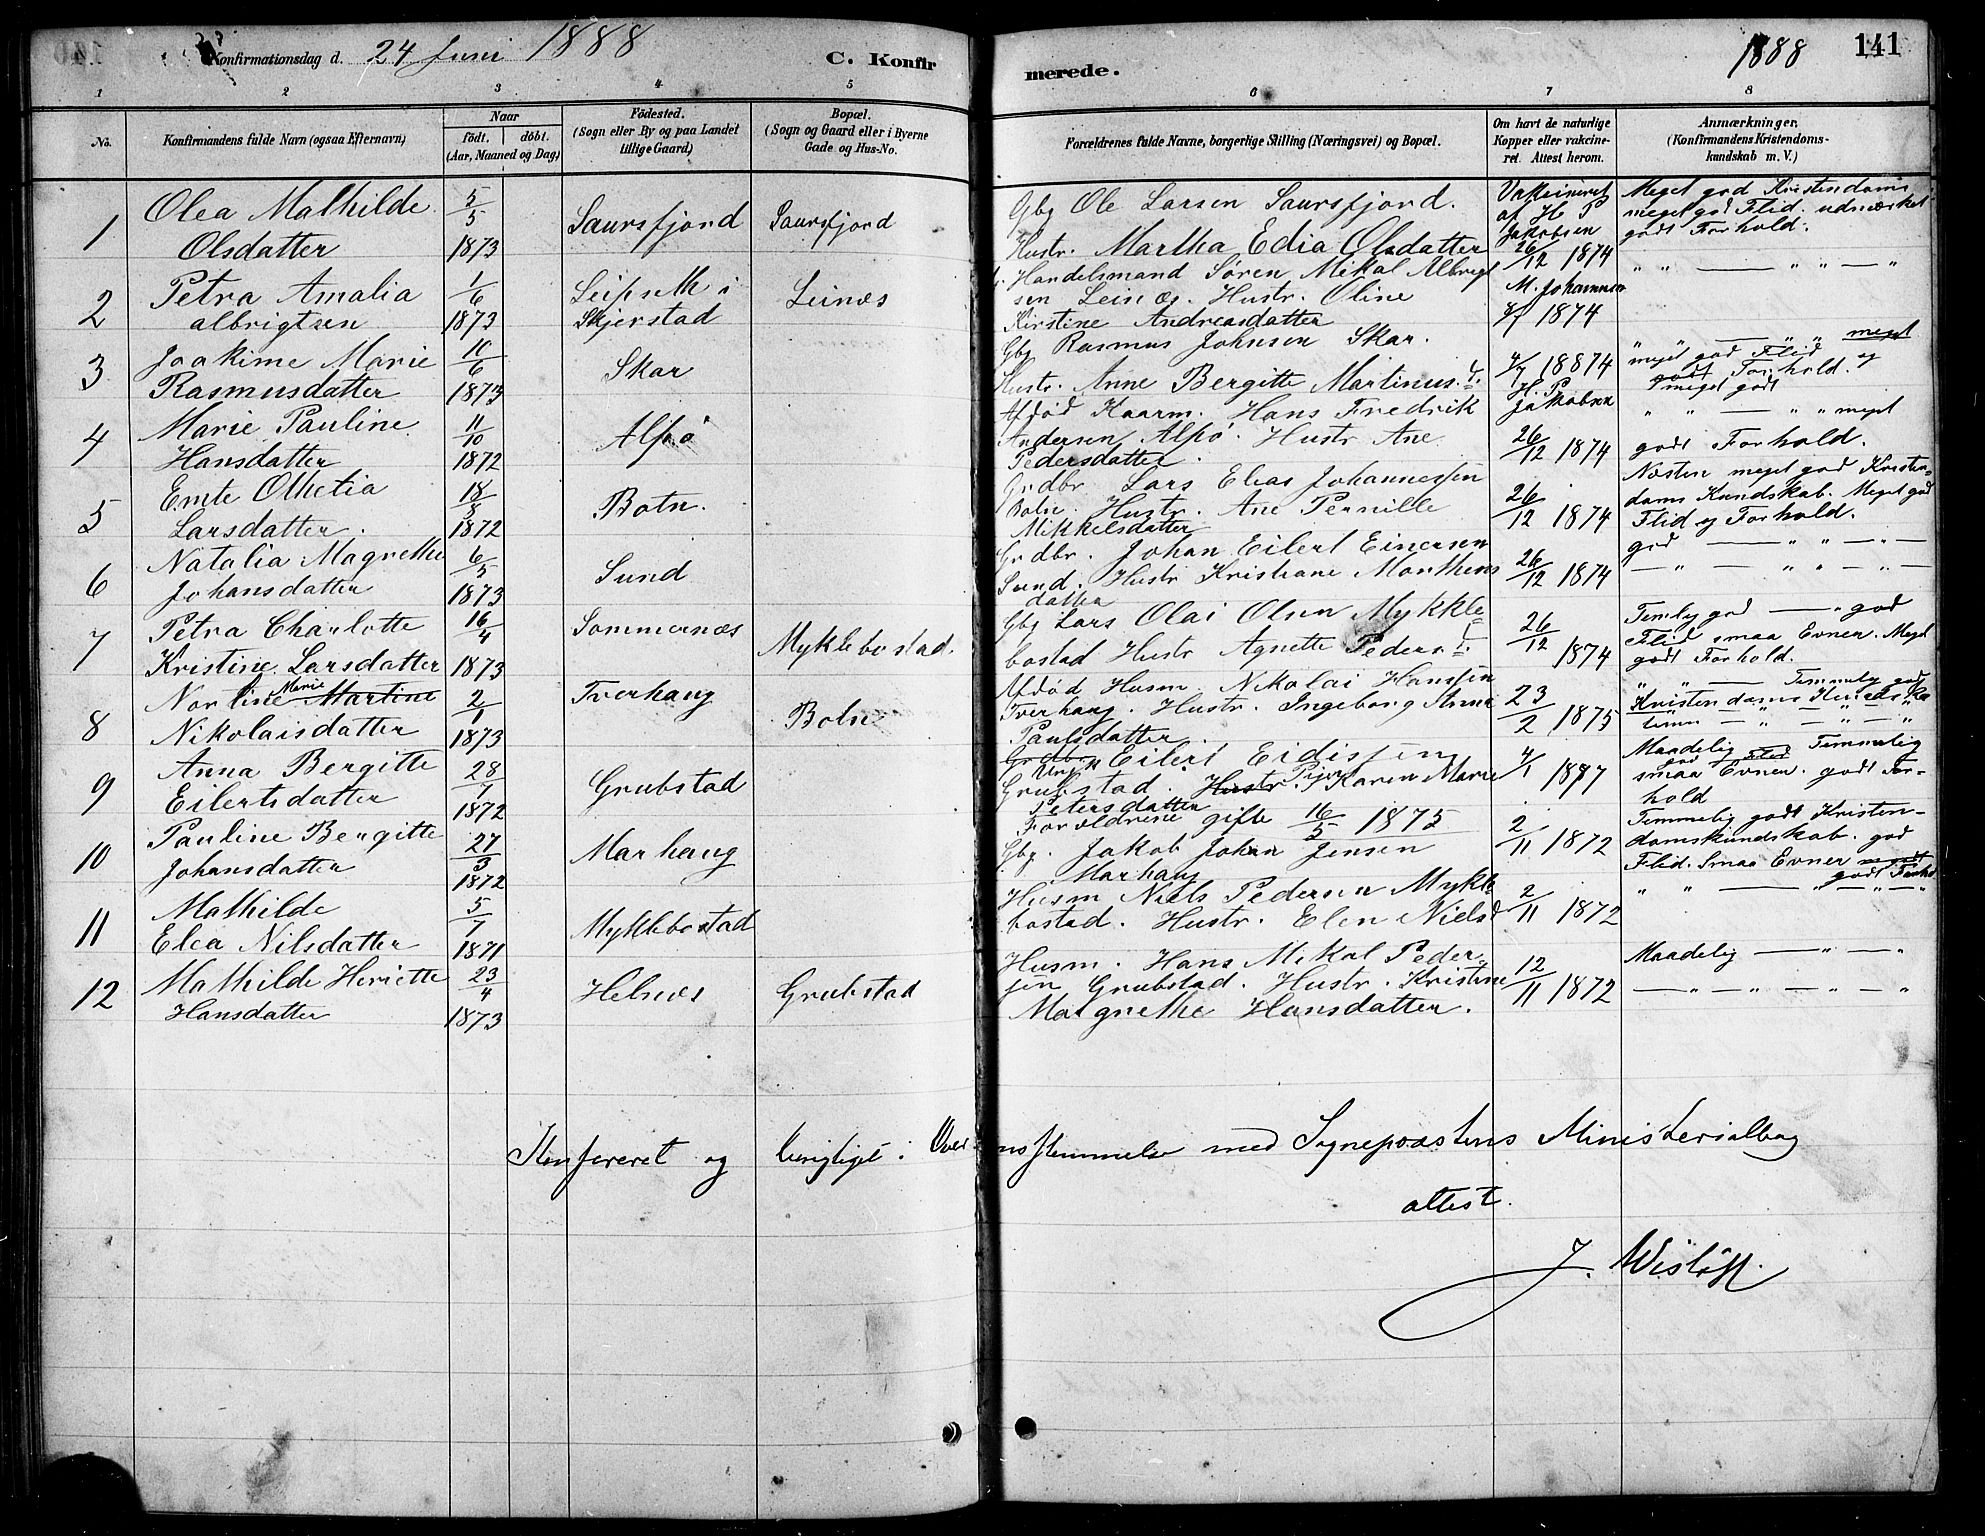 Konfirmationsdag d. 24 Juni 1888
C. Konfirmerede.
1888
141
1 2 3 4 5 6 7 8
No.
Konfirmandens fulde Navn (ogsaa Efternavn)
Naar
födt. döbt.
(Aar, Maaned og Dag)
Födested.
(Sogn eller By og paa Landet
tillige Gaard)
Bopæl.
(Sogn og Gaard eller i Byerne
Gade og Hus-No.
Forældrenes fulde Navne, borgerlige Stilling (Næringsvei) og Bopæl.
Om havt de naturlige
Kopper eller vakcine-
ret. Attest herom.
Anmærkninger,
(Konfirmandens Kristendoms-
kundskab m. V.)
1
Olea Mathilde
Olsdatter
5/5
1873
Saursfjord
Saursfjord
Gbg Ole Larsen Saursfjord.
Hustr. Martha Edia Olsdatter
Vakcineret
af H P
Jakobsen
26/12 1874
Meget god Kristendoms
meget god Flid. udmærket
godt Forhold.
2
Petra Amalia
albrigtsen
1/6
1873
Skjerstad
Leinæs
Handelsmand Søren Mikal Albrigt
sen Leinæs. Hustr. Oline
Kirstine Andreasdatter
M. Johannsen
1874
" " — " " — "
3
Joakime Marie
Rasmusdatter
10/6
1873
Skar
Gbg Rasmus Johnsen Skar.
Hustr. Anne Bergitte Martinus. d.
4/7 18874
meget god Flid meget
godt Forhold. og
meget godt
4
Marie Pauline
Hansdatter
11/10
1872
Alsø
Afdød Kaarm. Hans Fredrik
Andersen Alsø. Hustr Ane
Pedersdatter.
H. P.
Jakobsen
26/12 1874
" " — " " meget
godt Forhold.
5
Emte Othetia
Larsdatter.
18/8
1872
Botn.
Grdbr Lars Elias Johannessen
Botn. Hustr. Ane Pernille
Mikkelsdatter
26/12 1874
Næsten meget god Kristen-
doms Kundskab. Meget god
Flid og Forhold.
6
Natalia Magrethe
Johansdatter
6/5
1873
Sund
Grdbr. Johan Eilert Einersen
Sund. Hustr Kristiane Marthens
datter
26/12 1874
god — " " — " —
— " — " " — " —
7
Petra Charlotte
Kristine Larsdatter
16/4
1873
Sommernæs
Myklebostad.
Gbg Lars Olai Olsen Mykkle
bostad Hustr Agnette Peders d.
26/12
1874
Temlig god — " god
Flid smaa Evner. Meget
godt Forhold.
8
Norline Marie Martine
Nikolaisdatter
2/1
1873
Tverhaug
Botn
Afdød Husm. Nikolai Hanssen
Tverhaug. Hustr. Ingeborg Anna
Paulsdatter.
23/2 1875
" " — Temmelig god
Kristendoms Kundska
9
Anna Bergitte
Eilertsdatter
28/7
1872
Grubstad
Grdbr. Ungk Eilert Eidissen
Grubstad. Hustr. Pige Karen Marie
Petersdatter
Forældrene gifte 16/5 1875
4/1 1887
Maadelig Temmelig
smaa Evner. godt For-
hold
10
Pauline Bergitte
Johansdatter
27/3
1872
Marhaug
Gbg. Jakob Johan Jensen
Marhaug
2/11 1872
Temmelig godt Kristen-
domskundskab. god
Flid. Smaa Evner meget
godt Forhol
11
Mathilde
Elea Nilsdatter
5/7
1871
Myklebostad
Husm Niels Pedersen Mykle
bostad. Hustr. Elen Nielsd
2/11 1872
" " — " — " —
12
Mathilde Henriette
Hansdatter
23/4
1873
Helnæs
Grubstad
Husm. Hans Mikal Peder-
sen Grubstad. Hustr. Kristine
Margrethe Hansdatter.
12/11 1872
Maadelig — " — "
— " — " — " — "
Konfereret og berigtiget i Overensstemmelse med Sognepræstens Ministerialbog
attest.
J. Wisløff.